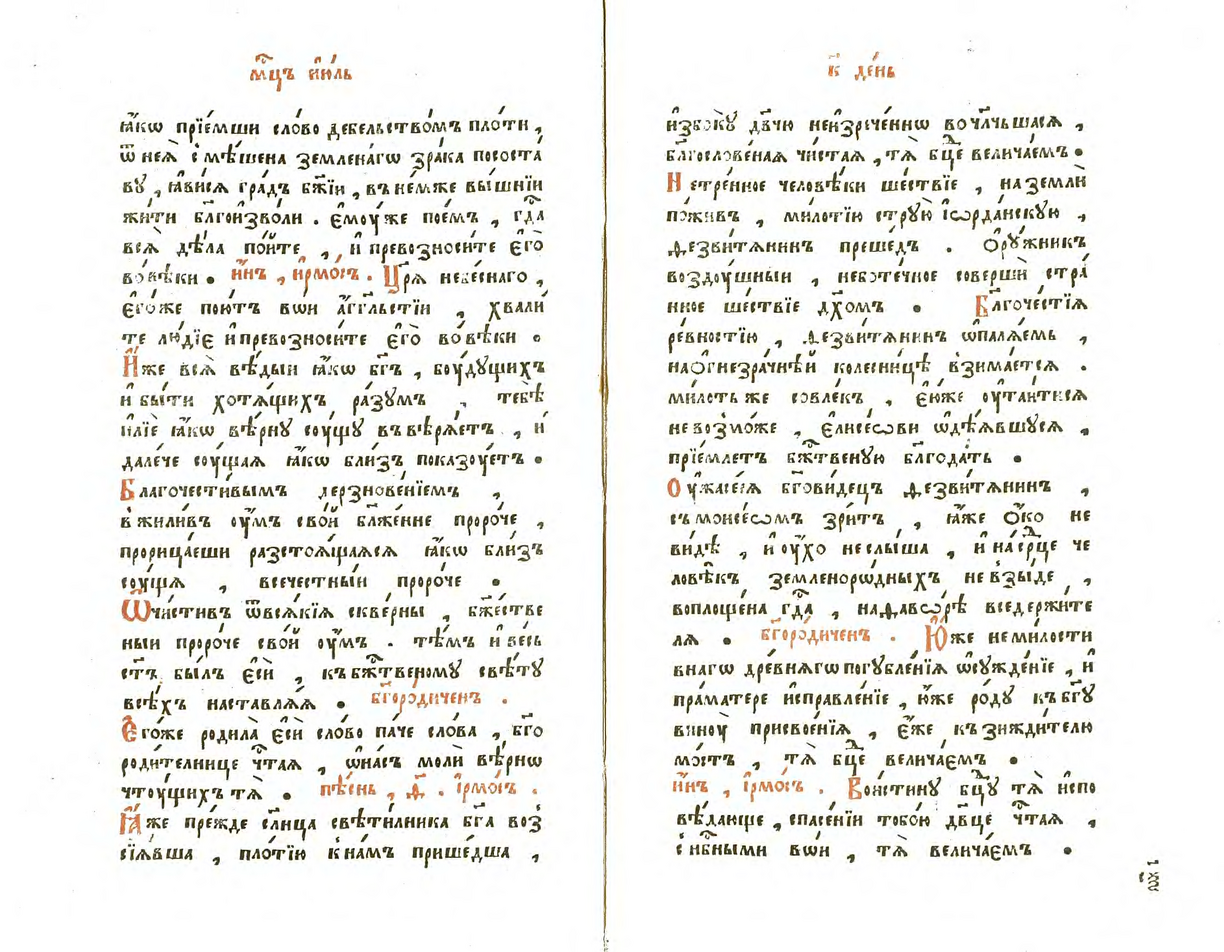 мⷭ҇цъ і҆ю́ль
ꙗ҆́кѡ прїе́мши сло́во дебельство́мъ пло́ти ,
ѿнеѧ̀ смѣ́шена земленагѡ зра́ка пососта
ву̀ , ꙗ҆ви́сѧ гра́дъ бж҃їи , въне́мже вы́шнїи
жи́ти бл҃гои҆зво́ли . є҆моу́же пое́мъ , гдⷭ҇а
всѧ̀ дѣ́ла по́йте , и҆ превозноси́те є҆го̀
вовѣ́ки . и҆́нъ , і҆рмо́съ . Цр҃ѧ̀ небе́снаго ,
є҆го́же пою́тъ во́и а҆́гг҃льстїи , хвали́
те лю́дїе и҆превозноси́те є҆го̀ вовѣ́ки .
И҆́же всѧ̀ вѣ́дыи ꙗ҆́кѡ бг҃ъ , боу́дущихъ
и҆ бы́ти хотѧ́щихъ ра́зумъ , тебѣ̀
и҆лїѐ ꙗ҆́кѡ вѣ́рну соу́щу въвѣрѧ́етъ , и҆
дале́че соу́щаѧ ꙗ҆́кѡ бли́зъ показоу́етъ .
Благочести́вымъ дерзнове́нїемъ ,
вжили́въ оу҆́мъ сво́й бл҃же́нне проро́че ,
прорица́еши разстоѧ́щаѧсѧ ꙗ҆́кѡ бли́зъ
соу́щѧ , всечестны́и проро́че .
Ѡ҆чи́стивъ ѿвсѧ́кїѧ скве́рны , бж҃е́стве
ныи проро́че сво́й оу҆́мъ . тѣ́мъ и҆ ве́сь
ст҃ъ бы́лъ є҆сѝ , къбжⷭ҇твеному свѣ́ту
всѣ́хъ наставлѧ́ѧ . бг҃оро́диченъ .
Є҆го́же родила̀ є҆сѝ сло́во па́че сло́ва , бг҃о
роди́телнице чⷭ҇таѧ , ѡ҆на́съ молѝ вѣ́рнѡ
чтоу́щихъ тѧ̀ . пѣ́снь , д҃ . і҆рмо́съ .
Ꙗ҆́же пре́жде сл҃нца свѣти́лника бг҃а воз
сїѧ́вша , пло́тїю кна́мъ прише́дша ,
к҃ де́нь
и҆збо́кꙋ дв҃чю неи҆зрече́ннѡ вочл҃чьшасѧ ,
бл҃гослове́наѧ чи́стаѧ , тѧ̀ бцⷣе велича́емъ .
Нетре́нное человѣ́ки ше́ствїе , наземлѝ
пожи́въ , ми́лотїю струю̀ і҆ѡрда́нскую ,
ѳезвитѧ́нинъ преше́дъ . Ѻ҆ру́жникъ
воздоу́шныи , неботе́чное совершѝ стра́
нное ше́ствїе дх҃омъ . Благоче́стїѧ
ре́вностїю , ѳезвитѧ́нинъ ѡ҆палѧ́емь ,
наѻ҆гнезра́чнѣй колесни́цѣ взима́етсѧ .
ми́лоть же совле́къ , є҆ю́же оу҆таи́тисѧ
невозмо́же , є҆лисе́ѡви ѡ҆дѣѧ́вшусѧ ,
прїе́млетъ бжⷭ҇твеную бл҃года́ть .
Оу҆жасе́сѧ бг҃ови́децъ ѳезвитѧ́нинъ ,
съмоисе́ѡмъ зри́тъ , ꙗ҆́же ѻ҆́ко не
ви́дѣ , и҆оу҆́хо неслы́ша , и҆на́срⷣце че
ловѣ́къ земленорѡ́дныхъ невзы́де ,
воплоще́на гдⷭ҇а , наѳавѡ́рѣ вседержи́те
лѧ . бг҃оро́диченъ . Ю҆́же неми́лости
внагѡ дре́внѧгѡпогубле́нїѧ ѡ҆сужде́нїе , и҆
прама́тере и҆справле́нїе , ю҆́же ро́ду къбг҃у
виноу̀ присвое́нїѧ , є҆́же къзижди́телю
мо́стъ , тѧ̀ бцⷣе велича́емъ .
и҆́нъ , і҆рмо́съ . Вои́стину бцⷣу тѧ̀ и҆спо
вѣ́дающе , спасе́нїи тобо́ю дв҃це чⷭ҇таѧ ,
снб҃ными во́и , тѧ̀ велича́емъ .